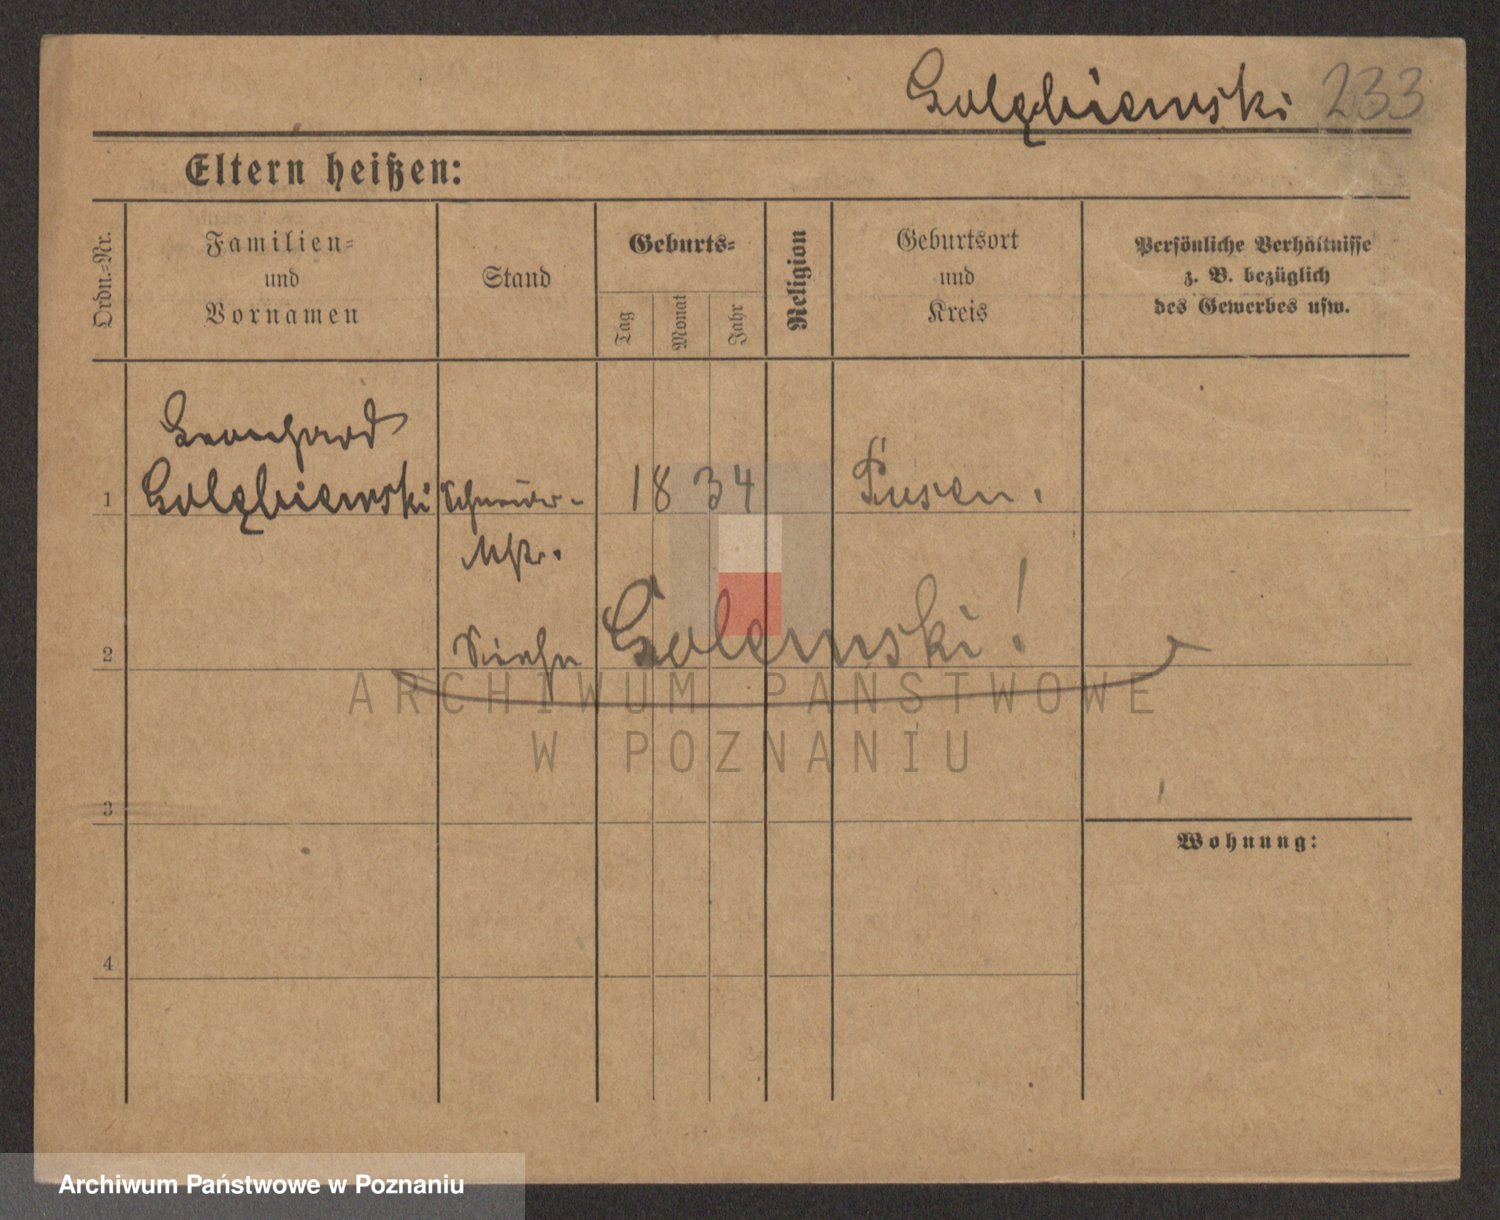 Golębiewski 233
Eltern heißen:
Ordn.-Nr.
Familien-
und
Vornamen
Stand
Geburts-
Tag
Monat
Jahr
Religion
Geburtsort
und
Kreis
Persönliche Verhältnisse
z. B. bezüglich
des Gewerbes usw.
Leonhard
1 Golębiewski Schneider- 1834 Posen.
Mstr.
2 Siehe Golemski!
ARCHIWUM PAŃSTWOWE
W POZNANIU
3
Wohnung:
4
Archiwum Państwowe w Poznaniu